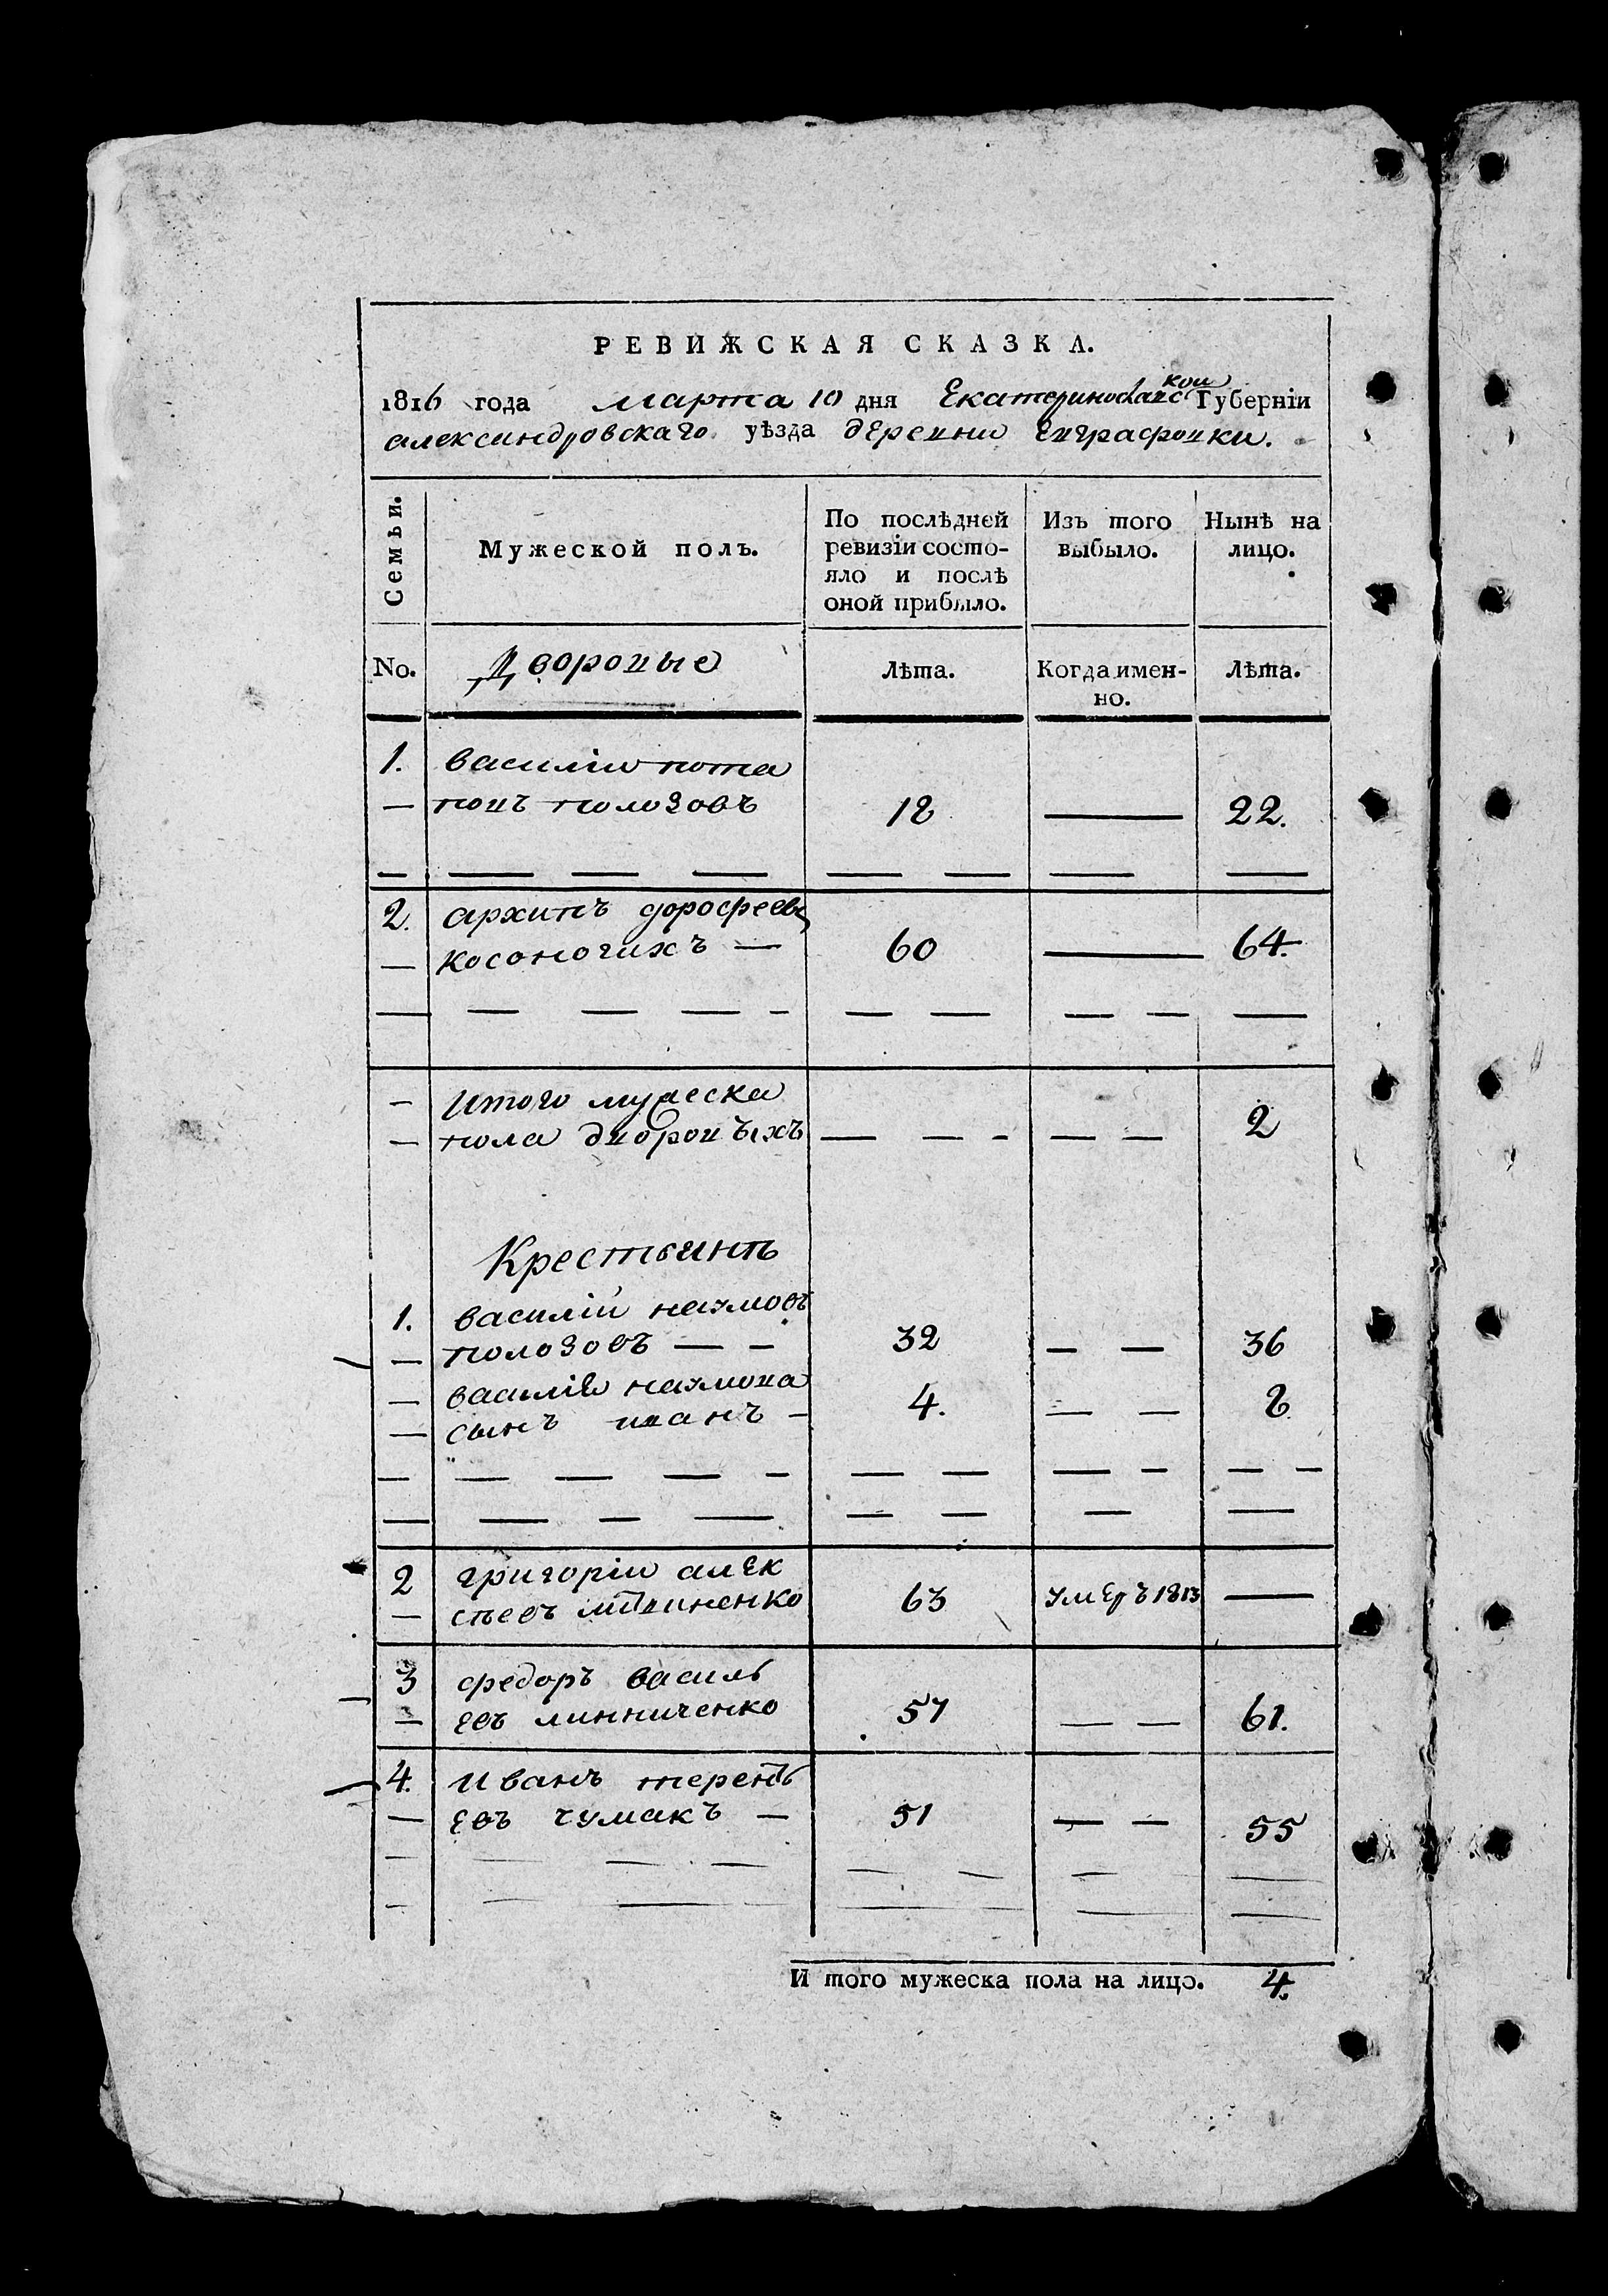 РЕВИЖСКАЯ СКАЗКА.
1816 года марта 10 дня Екатеринославской Губерніи
александровскаго уѣзда деревни евграфовки.
Семьи. Мужеской полъ. По послѣдней ревизіи состо-яло и послѣ оной прибыло. Изъ того выбыло. Нынѣ на лицо.
No. Дворовые Лѣта. Когда имен-но. Лѣта.
1. василіи пота
— повъ полозовъ 18 — 22.
2. архипъ дорофеевъ
— косоногихъ — 60 — 64.
— Итого мужеска
— пола дворовыхъ — — - — — 2
Крестьянъ
1. василій наумовъ
— полозовъ — - 32 — — 36
— василія наумова
— сынъ иванъ - 4. — — 8
2 григоріи алек
— сѣевъ 63 умеръ 1813 —
3 федоръ василь
— евъ линниченко 57 — — 61.
4. Иванъ терень
— евъ чумакъ — 51 — — 55
И того мужеска пола на лицо. 4.